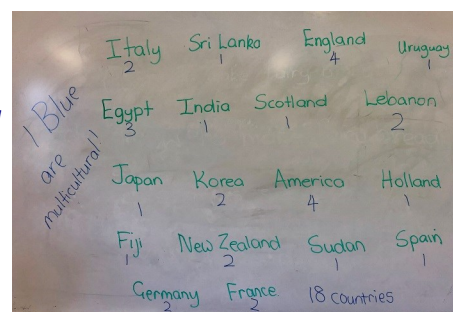 1 Blue
are
multicultural!
Italy Sri Lanka England Uruguay
2 1 4 1
Egypt India Scotland Lebanon
3 1 1 2
Japan Korea America Holland
1 2 4 1
Fiji New Zealand Sudan Spain
1 2 1 1
Germany France 18 countries
2 2